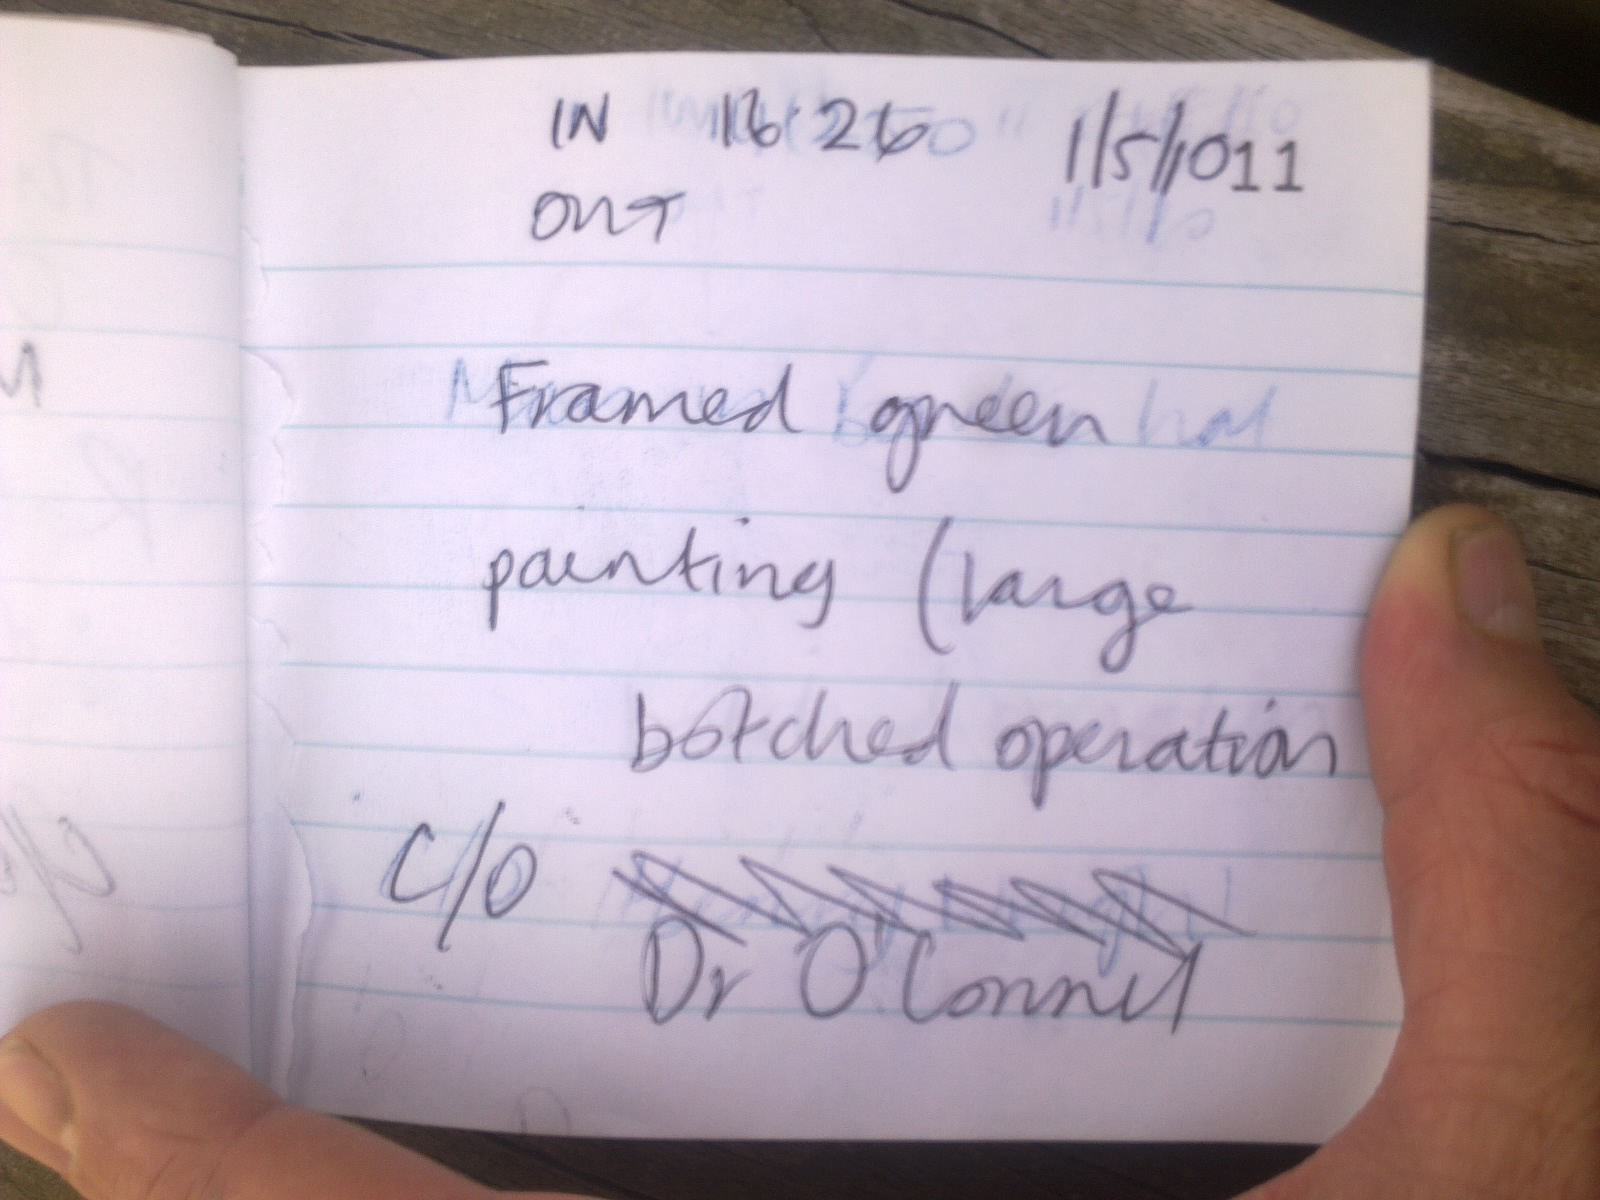 IN 16 26 1/5/1011
OUT
Framed green
painting (large
botched operation
C/O
Dr O'Connel